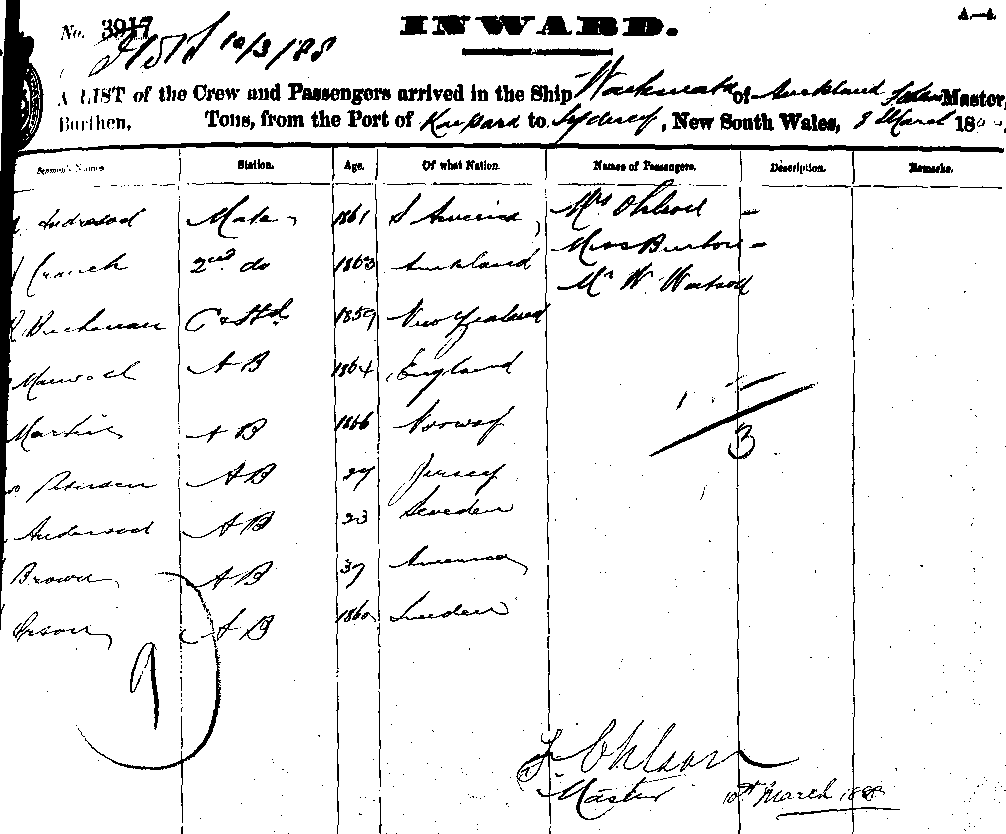 INWARD.
A.—4.
No. 3917
10/3/88
A LIST of the Crew and Passengers arrived in the Ship of Auckland Master,
Burthen, Tons, from the Port of to Sydney, New South Wales, 8 March 18
Seamen's Names Station. Age. Of what Nation. Names of Passengers. Description. Remarks.
Mate 1861 S America Mrs Ohlson –
2nd do 1863 Auckland Miss Burton –
Mr W. Watson
Buchanan 1859 New Zealand
A B 1864 England
Martin A B 1866 Norway
Petersen A B 27 Jersey
Anderson A B 23 Sweden
Brown A B 37 America
A B 1860 Sweden
3
9
F Ohlson
Master 10th March 1888